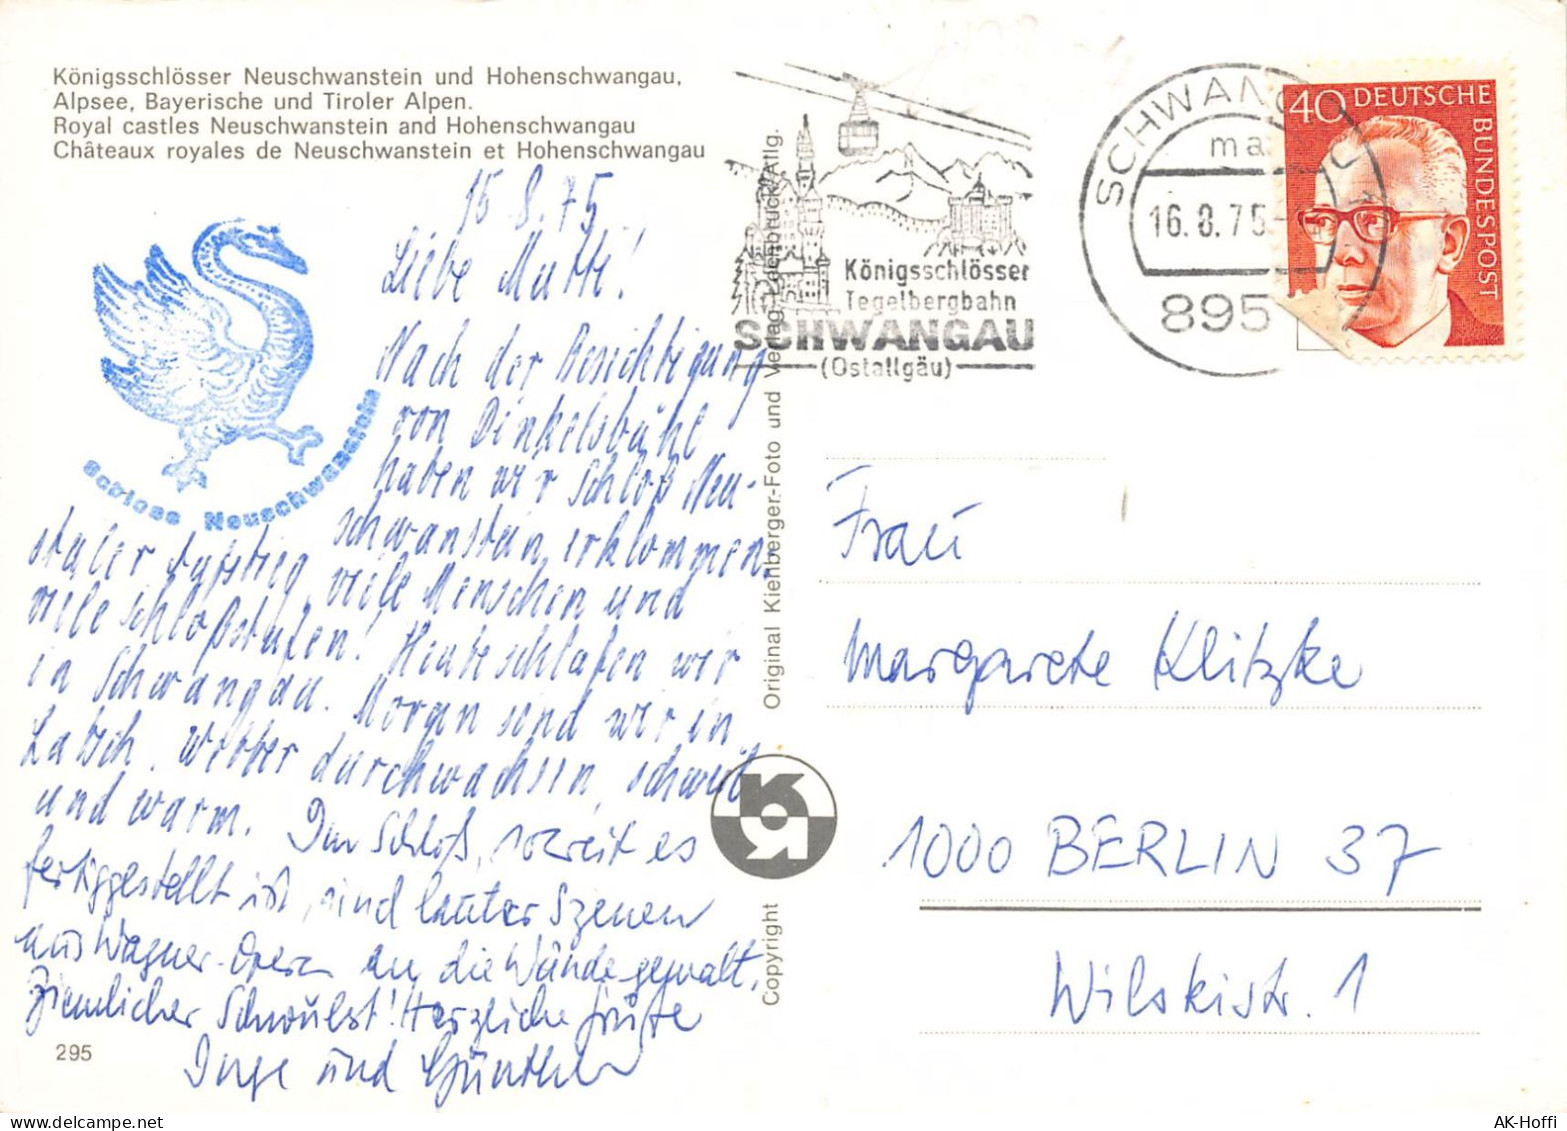 Königsschlösser Neuschwanstein und Hohenschwangau,
Alpsee, Bayerische und Tiroler Alpen.
Royal castles Neuschwanstein and Hohenschwangau
Châteaux royales de Neuschwanstein et Hohenschwangau
15.8.75
Liebe Mutti!
Nach der Besichtigung
von Dinkelsbühl
haben wir Schloß Neu-
schwanstein erklommen,
steiler Aufstieg, viele Menschen und
viele Schloßstufen! Heute schlafen wir
in Schwangau. Morgen sind wir in
Latsch. Wetter durchwachsen, schwül
und warm. Im Schloß, soweit es
fertiggestellt ist, sind lauter Szenen
aus Wagner-Opern an die Wände gemalt.
Ziemlicher Schwulst! Herzliche Grüße
Inge und Günther
295
Schloss Neuschwanstein
Königsschlösser
Tegelbergbahn
SCHWANGAU
(Ostallgäu)
SCHWANGAU
ma
16.8.75
895
40 DEUTSCHE
BUNDESPOST
Copyright
Original Kienberger-Foto und Verlag, Lechbruck/Allg.
Frau
Margarete Klitzke
1000 BERLIN 37
Wilskistr. 1
AK-Hoffi